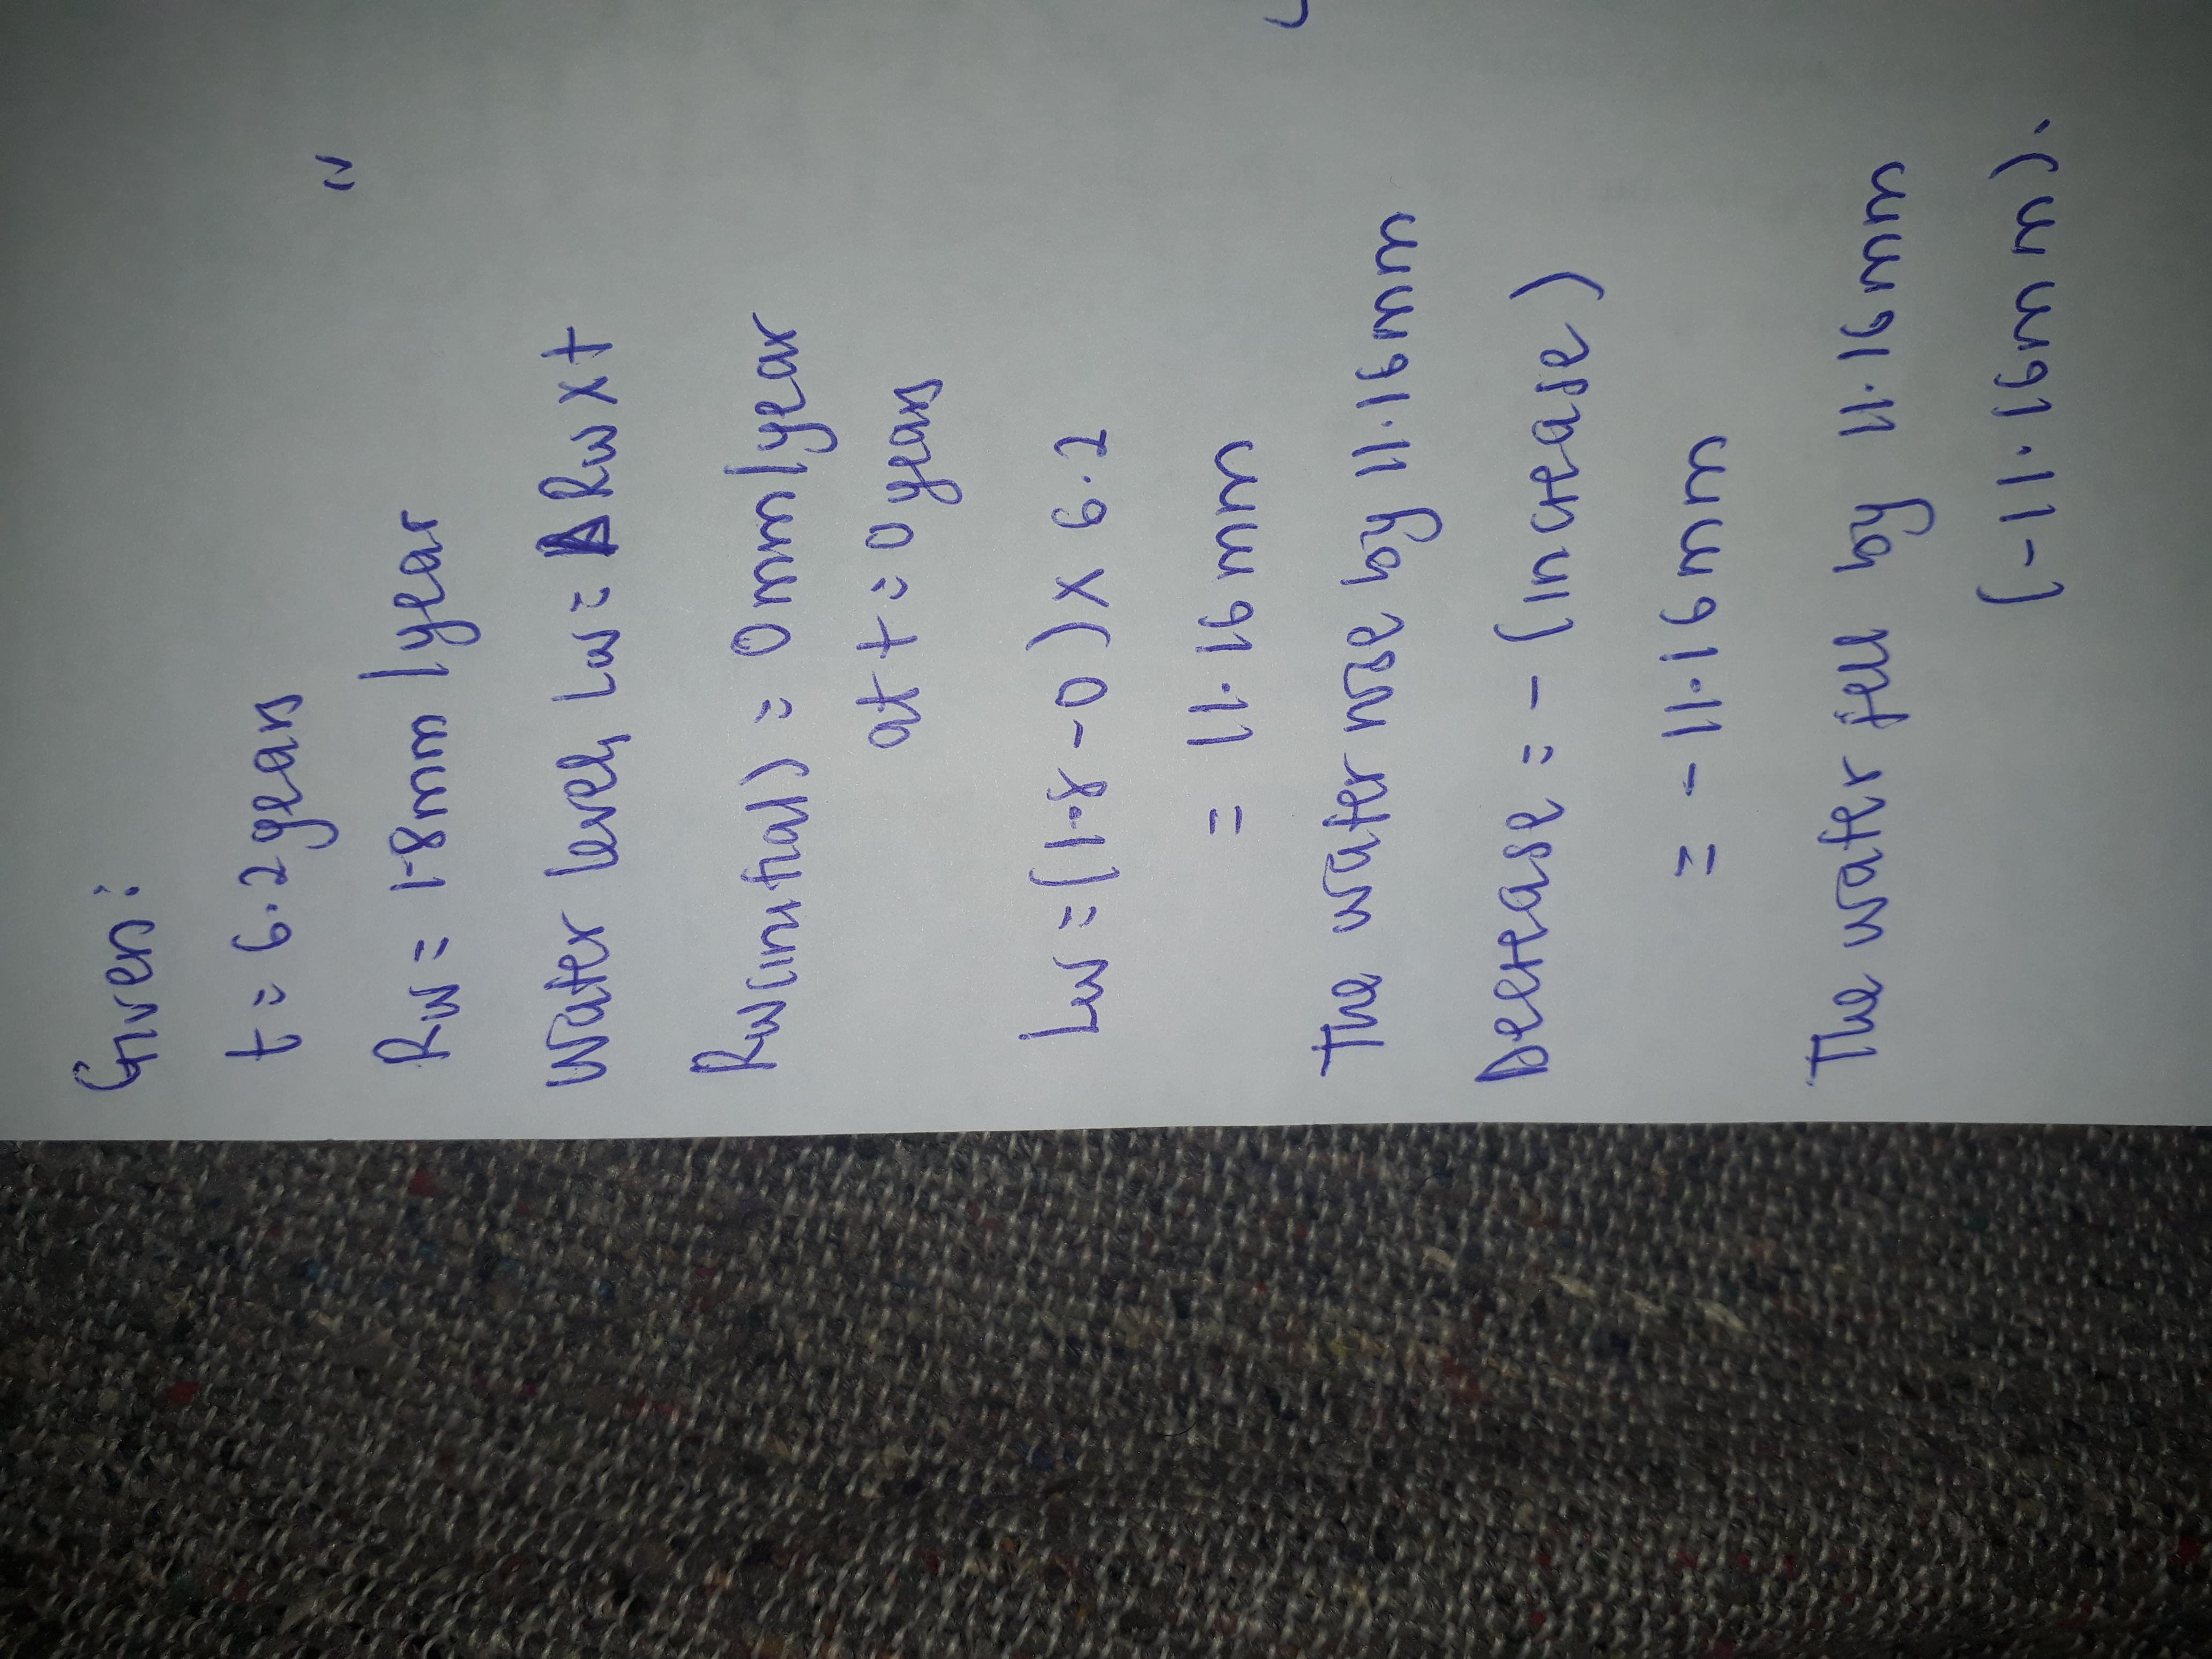 Given:
t = 6.2years
Rw = 1.8mm/year
Water level, Lw = ΔRw x t
Rw(initial) = 0mm/year
at t = 0years
Lw = (1.8 - 0) x 6.2
= 11.16mm
The water rose by 11.16mm
Decrease = - (increase)
= - 11.16mm
The water fell by 11.16mm
(-11.16mm).